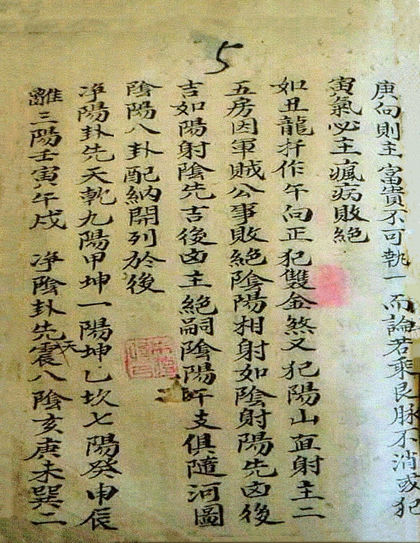 5
庚向則主富貴不可執一而論若乘艮脉不消或犯
寅氣必主瘋病敗絕
如丑龍扦作午向正犯雙金煞又犯陽山直射主二
五房因軍賊公事敗絕陰陽相射如陰射陽先凶後
吉如陽射陰先吉後凶主絕嗣陰陽干支俱隨河圖
陰陽八卦配納開列於後
净陽卦先天乾九陽甲坤一陽坤乙坎七陽癸申辰
離三陽壬寅午戌 净陰卦先天震八陰亥庚未巽二